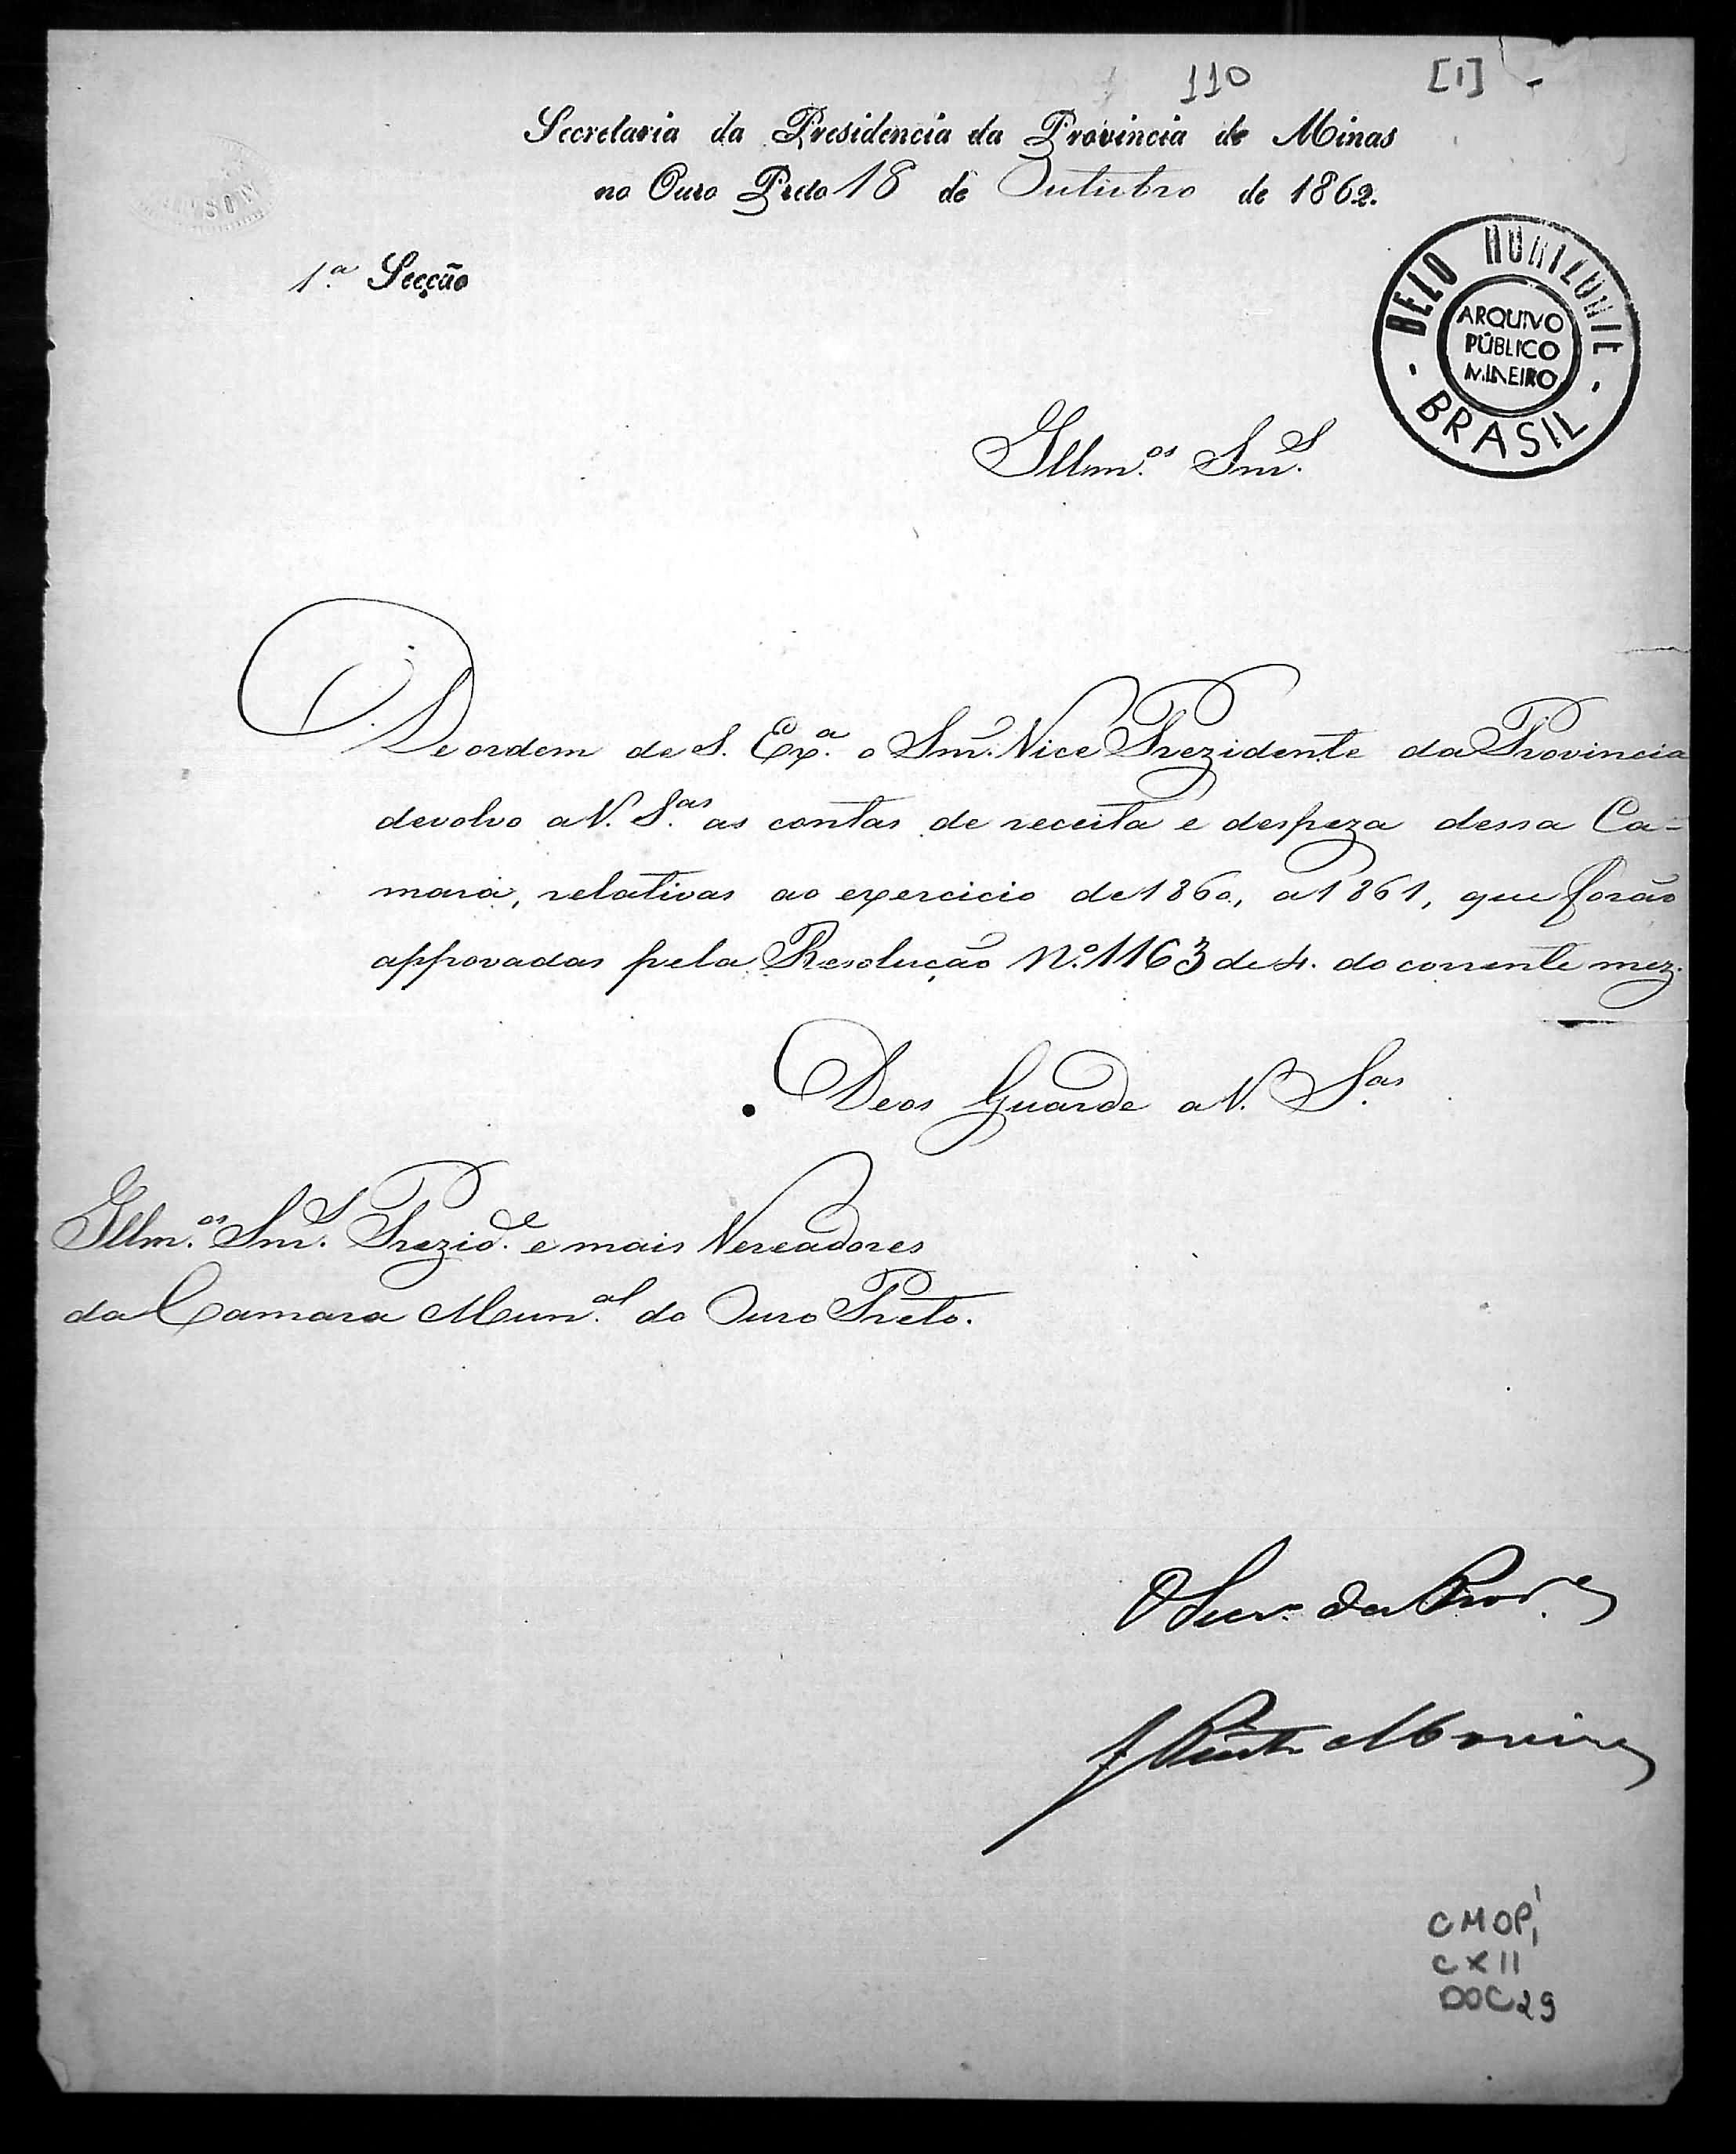 110 [1]
Secretaria da Presidencia da Provincia de Minas
no Ouro Preto 18 de Outubro de 1862.
1.ª Secção
BELO HORIZONTE
ARQUIVO
PÚBLICO
MINEIRO
BRASIL
Illm.os Snr.s
De ordem de S. Ex.a o Snr. Vice Prezidente da Provincia
devolvo a V. S.as as contas de receita e despeza dessa Ca-
mara, relativas ao exercicio de 1860, a 1861, que forão
approvadas pela Resolução N.º 1163 de 4. do corrente mez.
Deos Guarde a V. S.as
Illm.os Snr.s Prezid.e e mais Vereadores
da Camara Mun.al do Ouro Preto.
O Secr.o da
J Moreira
CMOP
CX 11
DOC 29